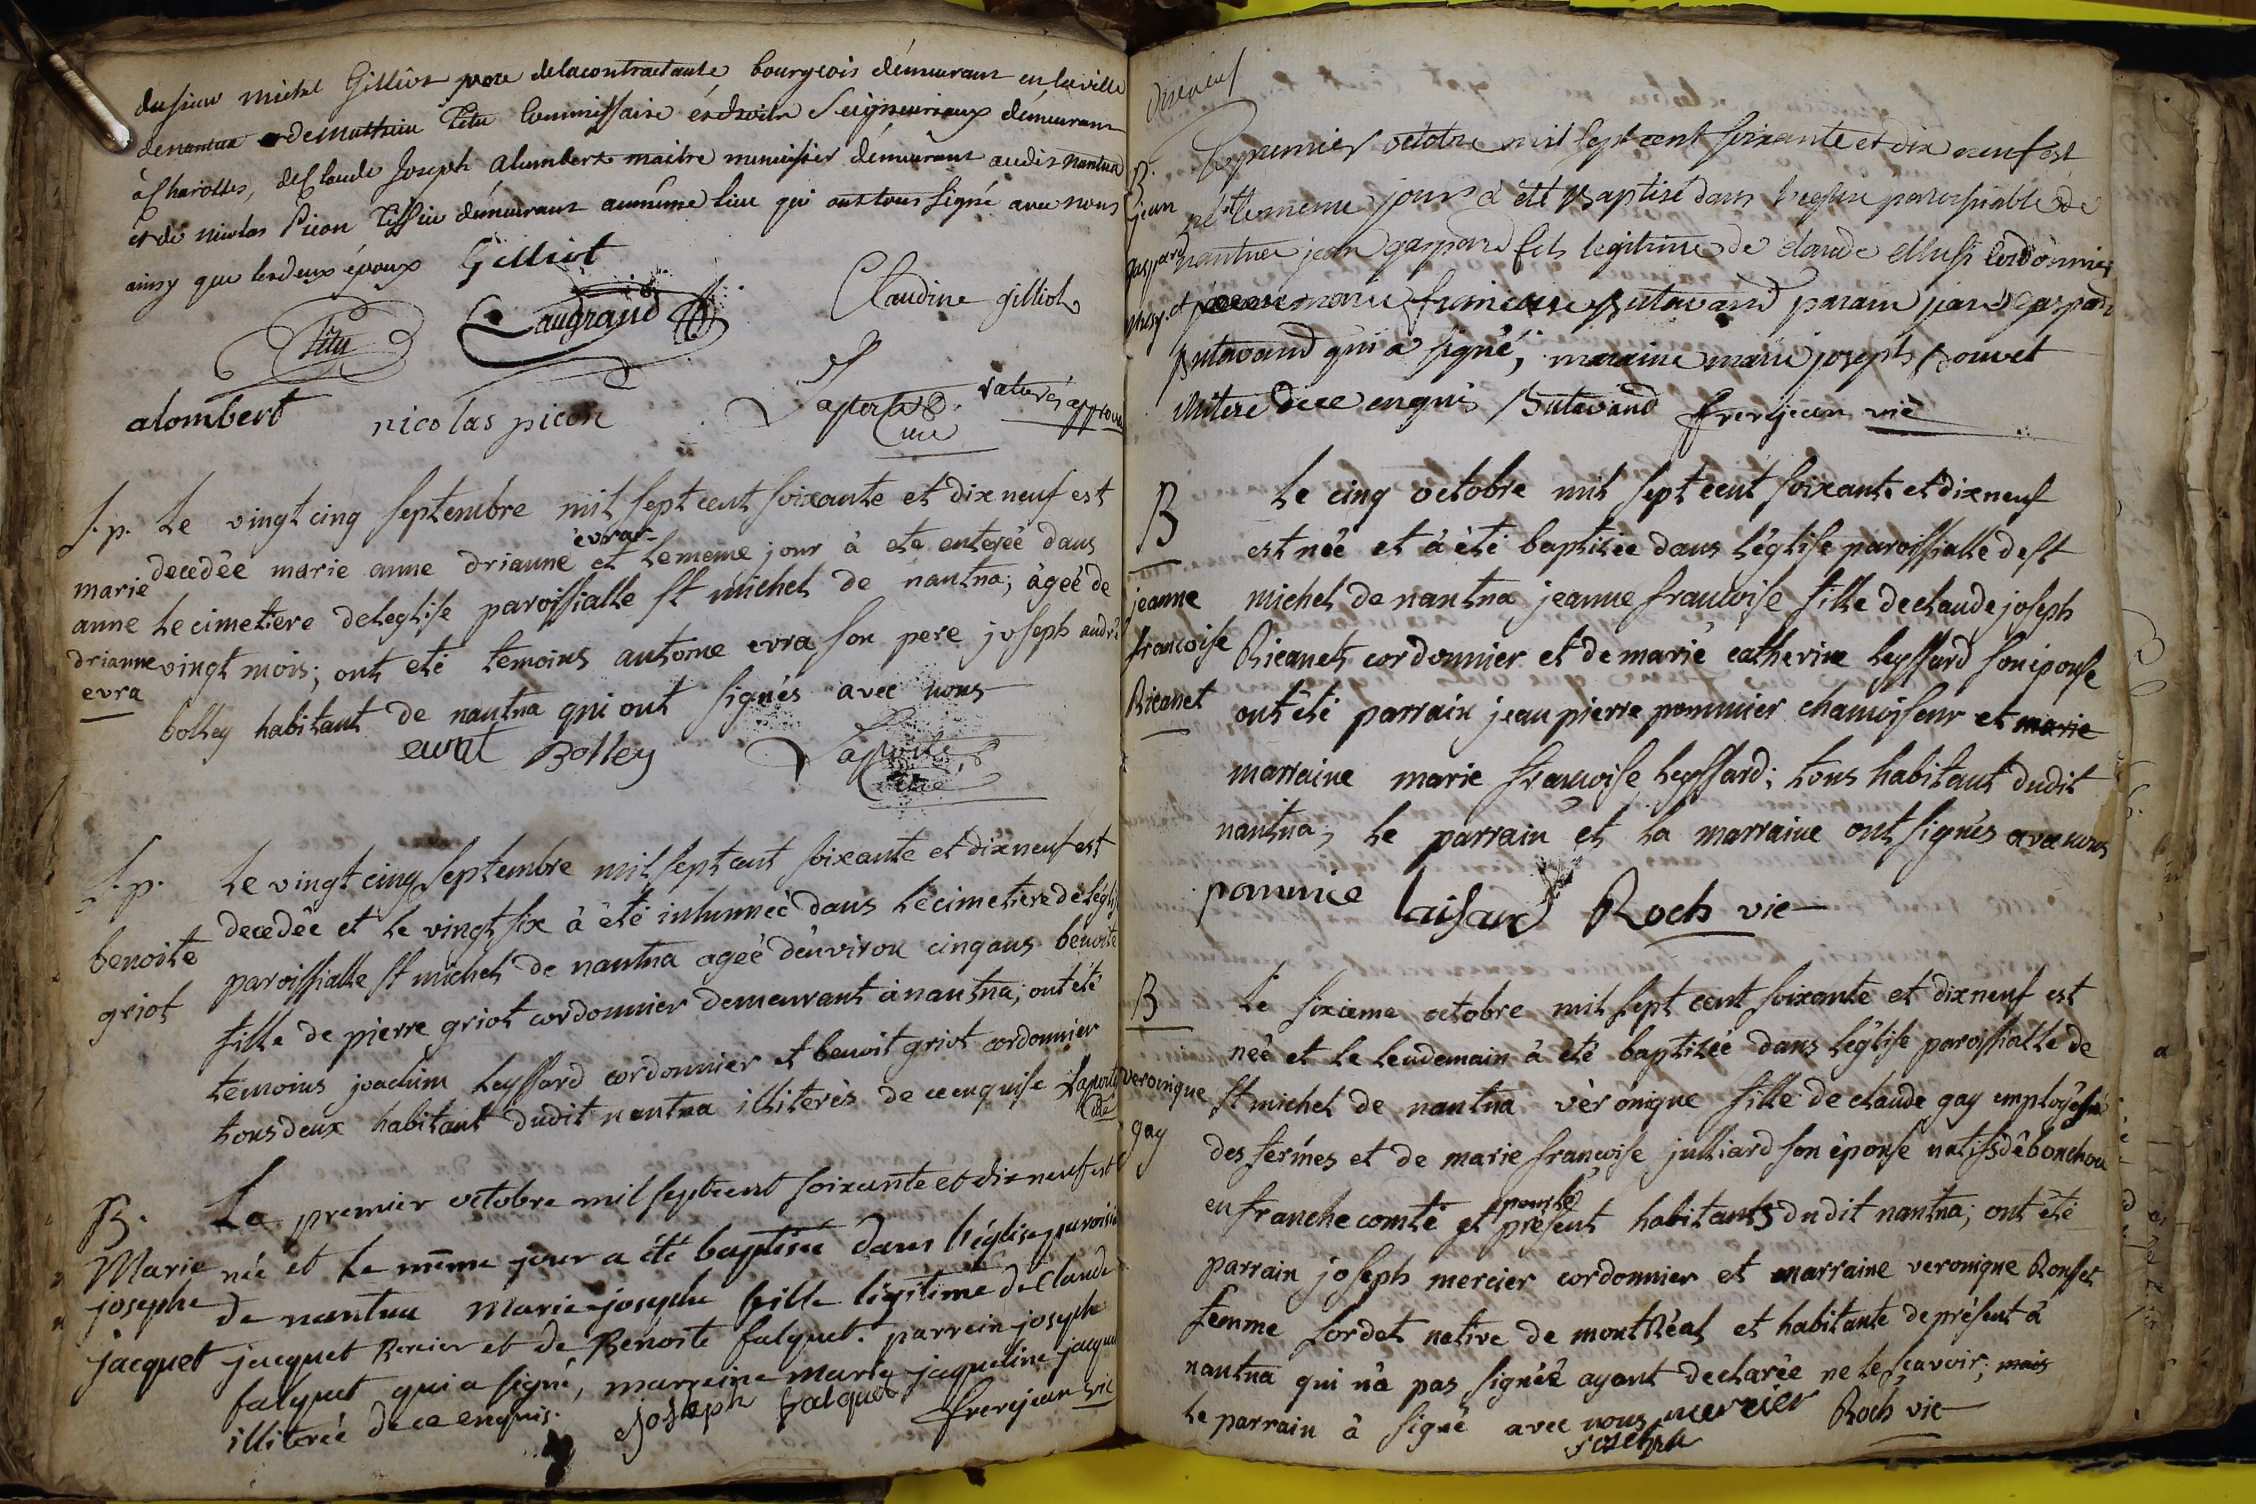 du sieur michel Gilliot pere delacontractante bourgeois démeurant en la ville
denantua et demathieu Titu Commissaire és droits Seigneuriaux démeurant
à Charolles, de Claude Joseph alumbert maitre menuisier démeurant audit nantua
et de nicolas Picon Tissier démeurant aumême lieu qui ont tous signé avec nous
ainsy que les deux époux Gilliot
Claudine gilliot
Titu Laugrand
alombert nicolas picon Laporte curé ratures approuvé
S.p. Le vingt cinq septembre mil sept cent soixante et dix neuf est
evra
decedée marie anne drianne et le meme jour à eté enterée dans
marie
anne le cimetiere deleglise paroissialle St michel de nantua; àgeé de
drianne vingt mois; ont eté temoins antoine evra son pere joseph andré
evra
bolley habitant de nantua qui ont signés avec nous
evrat Bolley Laporte
Curé
S.p. Le vingt cinq septembre mil sept cent soixante et dix neuf est
decedée et le vingt six à été inhumeé dans le cimetiere de leglise
benoite paroissialle St michel de nantua ageé d'environ cinq ans benoite
griot fille de pierre griot cordonnier demeurant à nantua; ont été
temoins joachim leyssard cordonnier et benoit griot cordonnier
tous deux habitant dudit nantua illiterés de ce enquise Laporte
Curé
B. Le premier octobre mil sept cent soixante et dix neuf est
Marie née et le même jour a été baptisée dans l'église paroisia
josephe de nantua Marie-josephe fille légitime de Claude
jacquet jacquet Bercier et de Benoite falquet. parrein josephe
falquet qui a signé, marreine marie jaqueline jacquet
illiterée de ce enquis. joseph falquet frerejean vic
dixneuf
B. Le premier octobre mil sept cent soixante et dix neuf est
jean né et le meme jour a été Baptisé dans l'eglise paroissialle de
gaspard nantua jean gaspard fils legitime de claude cordonnier
et marie francoise Butavand parain jean gaspard
Butavand qui a signé, maraine marie joseph Bouvet
illitere de ce enquis Butavand frerejean vic
B Le cinq octobre mil sept cent soixante et dix neuf
est née et à été baptisée dans l'église paroissialle de St
jeanne michel de nantua jeanne francoise fille de claude joseph
francoise Ricanet cordonnier et de marie catherine leyssard son épouse
Ricanet ont été parrain jean pierre pommier chamoiseur et marie
marraine marie francoise leyssard; tous habitant dudit
nantua; le parrain et la marraine ont signés avec nous
pommiee laisard Roch vic
B Le sixieme octobre mil sept cent soixante et dix neuf est
neé et le lendemain à été baptisée dans l'église paroissialle de
veronique St michel de nantua vèronique fille de claude gay employé
gay des fermes et de marie françoise julliard son épouse natifs de bonchou
pour le
en franche comté et présent habitants dudit nantua; ont été
parrain joseph mercier cordonnier et marraine veronique Rousset
femme sordet native de montRéal et habitante de présent à
nantua qui n'a pas signée ayant declarée ne le scavoir; mais
le parrain à signé avec nous mercier Roch vic
Joseph